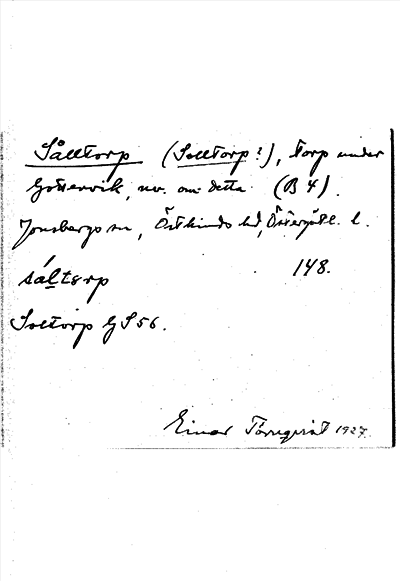 Sålltorp (Solltorp?), torp under
Gottenvik, nv. om detta (B 4).
Jonsbergs sn, Östkinds hd, Östergötl. l.
sáltɷrp 148.
Soltorp GS56.
Einar Törnqvist 1927.